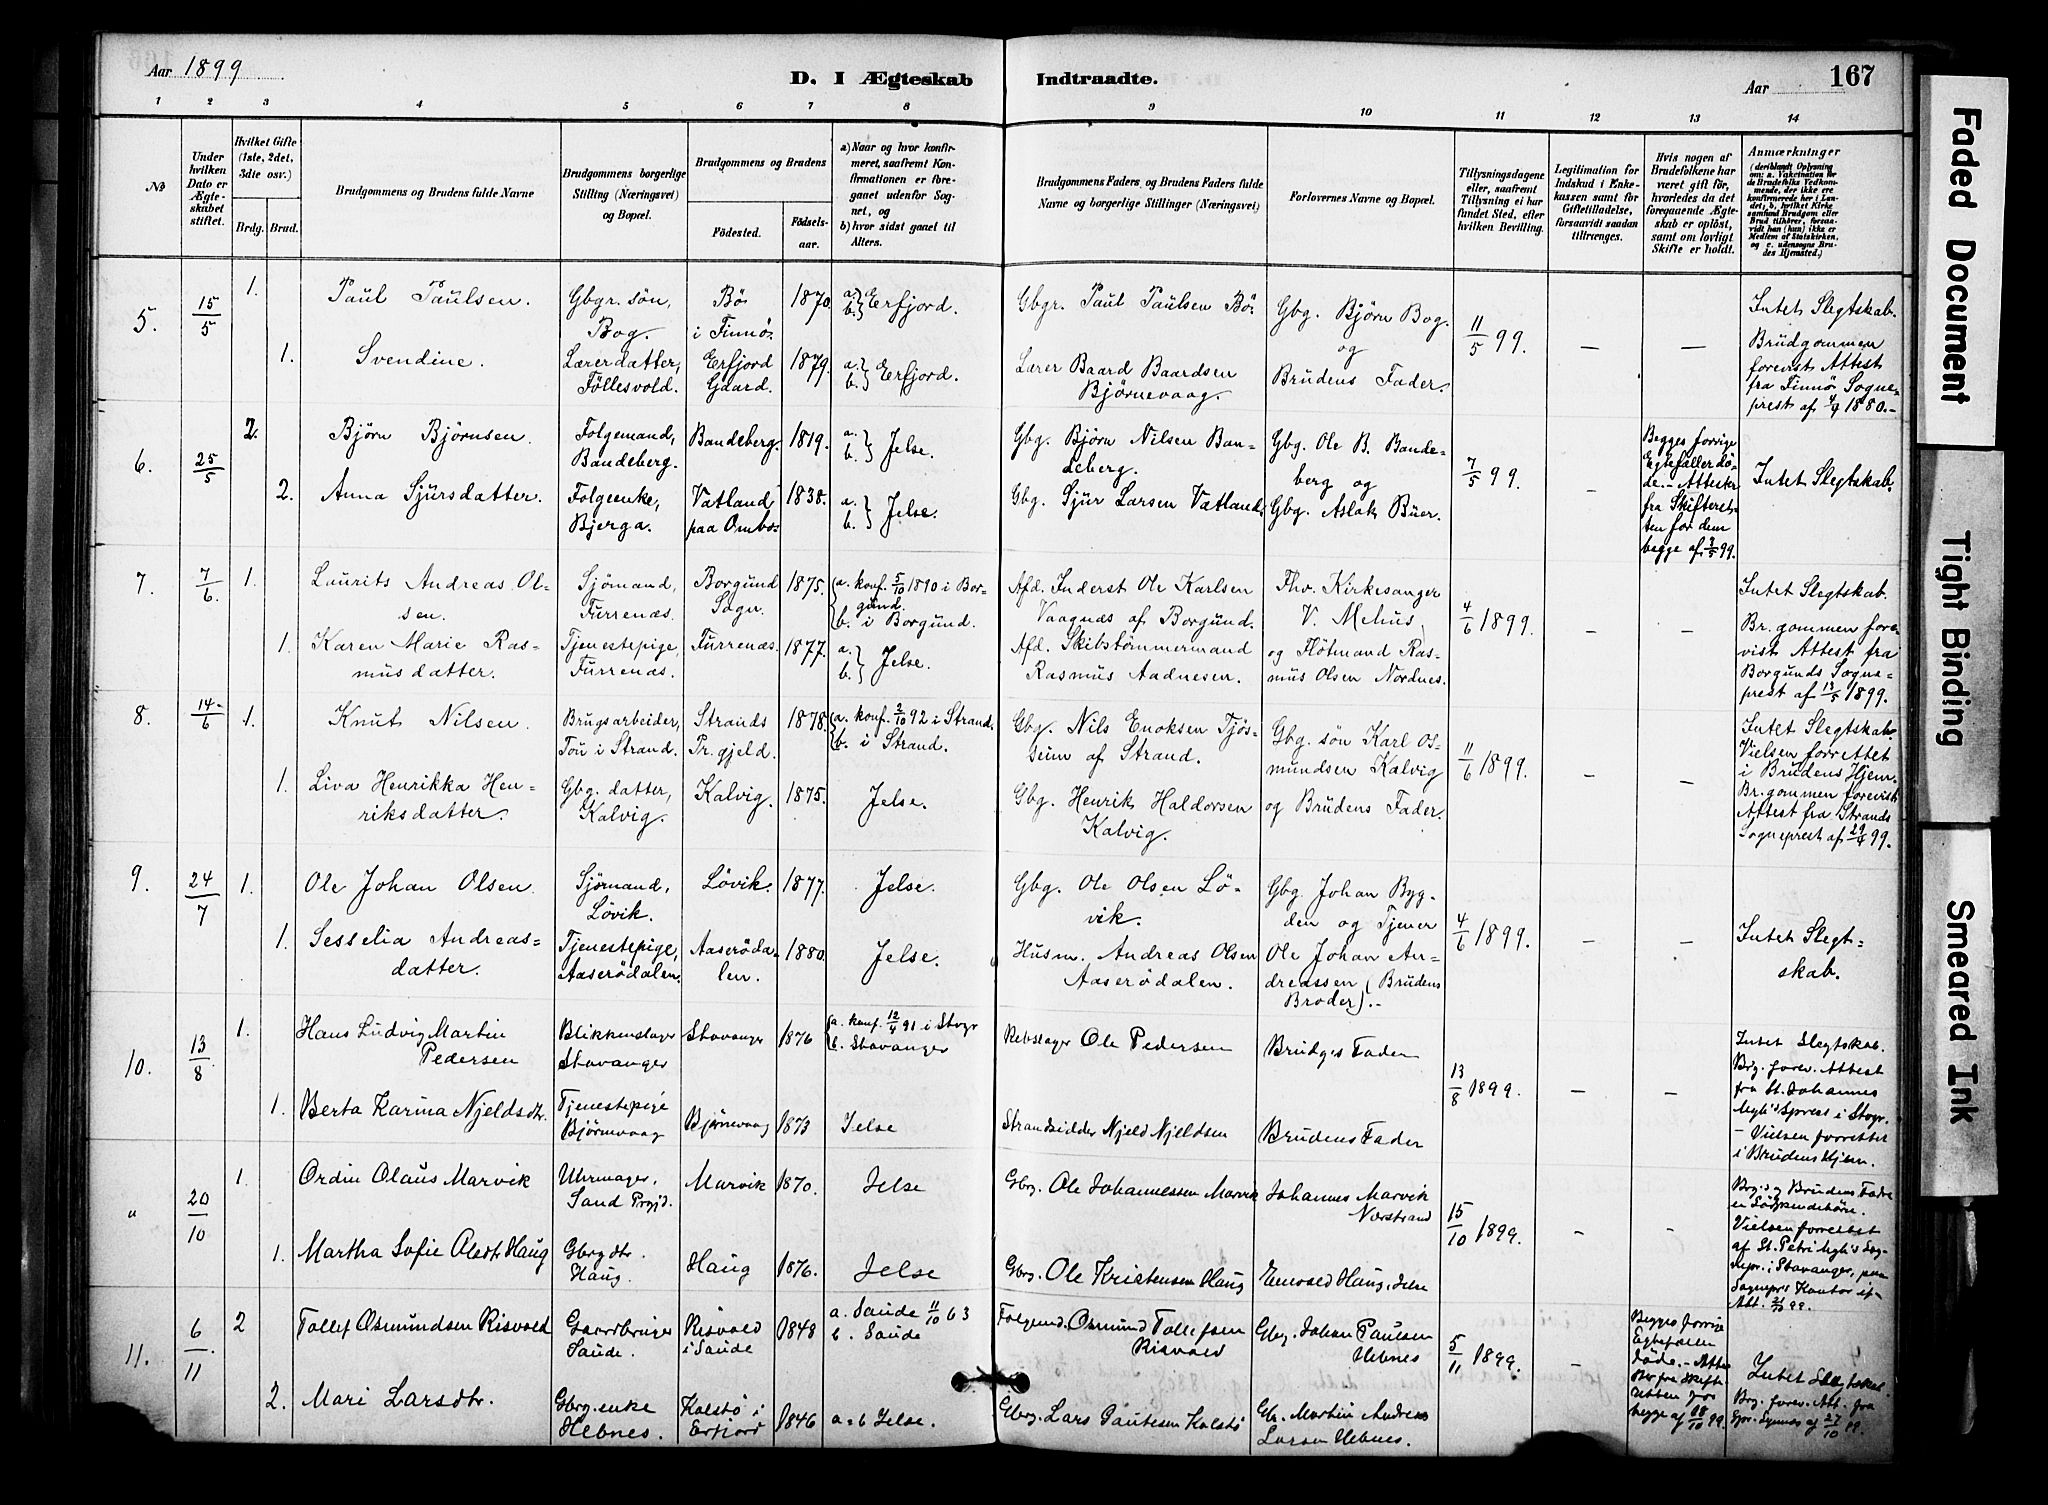 Aar 1899
D. I Ægteskab Indtraadte.
Aar 167
1 2 3 4 5 6 7 8 9 10 11 12 13 14
No
Under hvilken Dato er Ægteskabet stiftet.
Hvilket Gifte (1ste, 2det, 3die osv.)
Brdg. Brud.
Brudgommens og Brudens fulde Navne
Brudgommens borgerlige Stilling (Næringsvei) og Bopæl.
Brudgommens og Brudens
Fødested.
Fødsels-aar.
a) Naar og hvor konfirmeret, saafremt Konfirmationen er foregaaet udenfor Sognet, og
b) hvor sidst gaaet til Alters.
Brudgommens Faders, og Brudens Faders fulde Navne og borgerlige Stillinger (Næringsvei)
Forlovernes Navne og Bopæl.
Tillysningsdagene eller, saafremt Tillysning ei har fundet Sted, efter hvilken Bevilling.
Legitimation for Indskud i Enkekassen samt for Giftetilladelse, forsaavidt saadan tiltrænges.
Hvis nogen af Brudefolkene har været gift før, hvorledes da det foregaaende Ægteskab er opløst, samt om lovligt Skifte er holdt.
Anmærkninger
(deriblandt Oplysning om: a. Vakcination for de Brudefolks Vedkommende, der ikke ere konfirmerede her i Landet; b. hvilket Kirkesamfund Brudgom eller Brud tilhører, forsaavidt han (hun) ikke er Medlem af Statskirken, og c. udensogns Brudes Hjemsted.)
5. 15/5 1. Paul Paulsen. Gbgr. søn, Bog. Bø i Finnø. 1870. a. b. } Erfjord. Gbgr. Paul Paulsen Bø. Gbg. Bjørn Bog. og Brudens Fader. 11/5 99. — — Intet Slegtskab. Brudgommen forevist Attest fra Finnø Sogneprest af 4/9 1880.-
1. Svendine. Lærerdatter, Føllesvold. Erfjord Gaard. 1879. a. b. } Erfjord. Lærer Baard Baardsen Bjørnevaag.
6. 25/5 2. Bjørn Bjørnsen. Folgemand, Bandeberg. Bandeberg. 1819. a. b. } Jelse. Gbg. Bjørn Nilsen Bandeberg. Gbg. Ole B. Bandeberg og Gbg. Aslak Buer. 7/5 99. - Begges forrige Egtefæller døde.- Attester fra Skifteretten for dem begge af 3/5 99. Intet Slegtskab.
2. Anna Sjursdatter. Folgeenke, Bjerga. Vatland paa Ombo. 1838. a. b. } Jelse. Gbg. Sjur Larsen Vatland.
7. 7/6. 1. Laurits Andreas Olsen. Sjømand, Furrenæs. Borgund Sogn. 1875. a. konf. 5/10 1890 i Borgund. b. i Borgund. Afd. Inderst Ole Karlsen Vaagnæs af Borgund. Fhv. Kirkesanger V. Mehus, og Fløtmand Rasmus Olsen Nordnes. 4/6 1899. - - Intet Slegtskab. Br.gommen forevist Attest fra Borgunds Sogneprest af 13/5 1899.
1. Karen Marie Rasmusdatter. Tjenestepige, Furrenæs. Furrenæs. 1877. a. b. } Jelse. Afd. Skibstømmermand Rasmus Aadnesen.
8. 14/6 1. Knut Nilsen. Brugsarbeider, Tou i Strand. Strands Pr.gjeld. 1878. a. konf. 2/10 92 i Strand. b. i Strand. Gbg. Nils Enoksen Tjøsseim af Strand. Gbg. søn Karl Osmundsen Kalvig og Brudens Fader. 11/6 1899. - - Intet Slegtskab. Vielsen forrettet i Brudens Hjem. Br.gommen forevist Attest fra Strands Sogneprest af 29/4 99.
1. Liva Henrikka Henriksdatter. Gbg. datter, Kalvig. Kalvig. 1875. Jelse. Gbg. Henrik Haldorsen Kalvig.
9. 24/7 1. Ole Johan Olsen. Sjømand, Løvik. Løvik. 1877. Jelse. Gbg. Ole Olsen Løvik. Gbg. Johan Bygden og Tjener Ole Johan Andreassen (Brudens Broder).- 4/6 1899. - - Intet Slegtskab.
1. Sesselia Andreasdatter. Tjenestepige, Aaserødalen. Aaserødalen. 1880. Jelse. Husm. Andreas Olsen Aaserødalen.
10. 13/8 1. Hans Ludvig Martin Pedersen Blikkenslager Stavanger Stavanger 1876 a. konf. 12/4 91 i Stvgr b. Stavanger Rebslager Ole Pedersen Brudgs Fader 13/8 1899. - - Intet Slegtskab. Brg. forev. Attest fra St. Johannes Mgh's Spress i Stvgr. - Vielsen forrettet i Brudens Hjem.
1. Berta Karina Njeldsdtr. Tjenestepige Bjørnevaag Bjørnevaag 1873 Jelse Strandsidder Njeld Njeldsen Brudens Fader
" 20/10 1. Ordin Olaus Marvik Uhrmager, Sand Prgjd. Marvik 1870. Jelse Gbrg. Ole Johannessen Marvik Johannes Marvik Nærstrand 15/10 1899. - - Brg's og Brudens Fædre er Søskendebørn. Vielsen forrettet af St. Petri Mgh's Sognepr. i Stavanger, paa Sognepr's Kontor
1. Martha Sofie Olesdtr Haug Gbrg dtr. Haug. Haug 1876. Jelse Gbrg. Ole Kristensen Haug Haug, Jelse
11. 6/11 2 Tollef Osmundsen Risvold Gaardbruger Saude. Risvold i Saude 1848 a. Saude 11/10 63 b. Saude Folgemd. Osmund Tollefsen Risvold Gbg. Johan Paulsen Hebnes 5/11 1899. - Begges forrige Egtefæller døde.- Attester fra Skifteretten for begge af 18/10 99. Intet Slegtskab. Brg. forev. Att. fra af 27/10 99.
2. Mari Larsdtr. Gbrg. enke Hebnes. Kolstø i Erfjord 1846 a=b Jelse. Gbrg. Lars Gautesen Kolstø Gb. Martin Andreas Larsen Hebnes.
Faded Document
Tight Binding
Smeared Ink